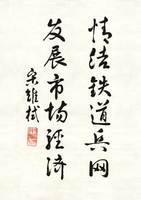 情结铁道兵网
发展市场经济
宋雄斌